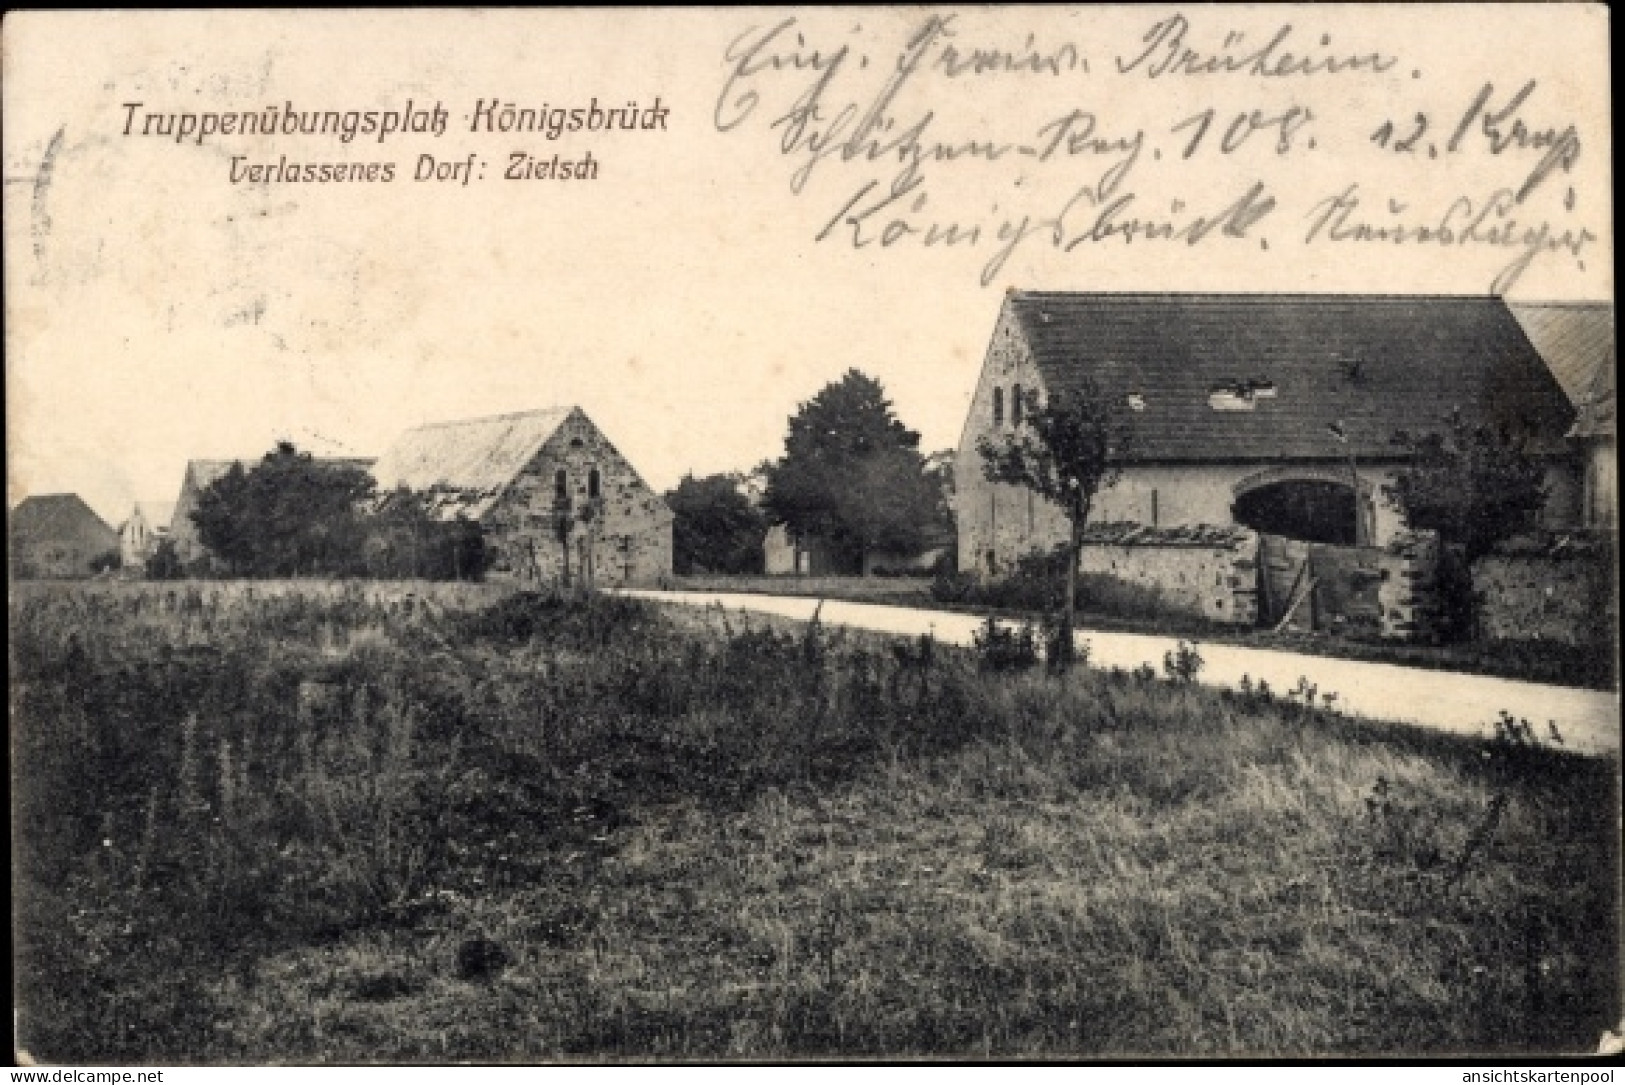 Truppenübungsplatz Königsbrück
Verlassenes Dorf: Zietsch
Einj. Freiw. Brüheim.
Schützen-Reg. 108. 12. Komp
Königsbrück. Neues Lager.
www.delcampe.net
ansichtskartenpool